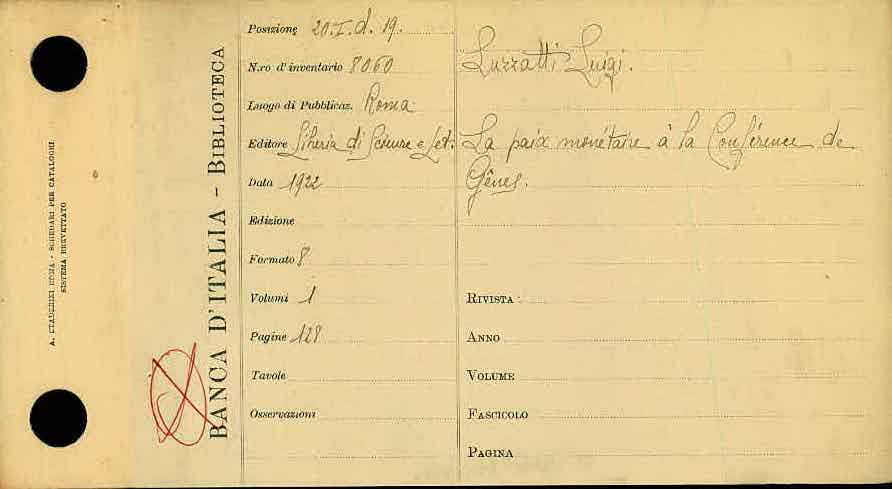 A. STADERINI ROMA - SCHEDARI PER CATALOGHI
SISTEMA BREVETTATO
BANCA D'ITALIA - BIBLIOTECA
Posizione 20.I.d.19.
N.ro d'inventario 8060
Luogo di Pubblicaz. Roma
Editore Libreria di Scienze e Let:
Data 1922
Edizione
Formato 8
Volumi 1
Pagine 128
Tavole
Osservazioni
Luzzatti Luigi.
La paix monétaire à la Conférence de
Gênes.
RIVISTA
ANNO
VOLUME
FASCICOLO
PAGINA